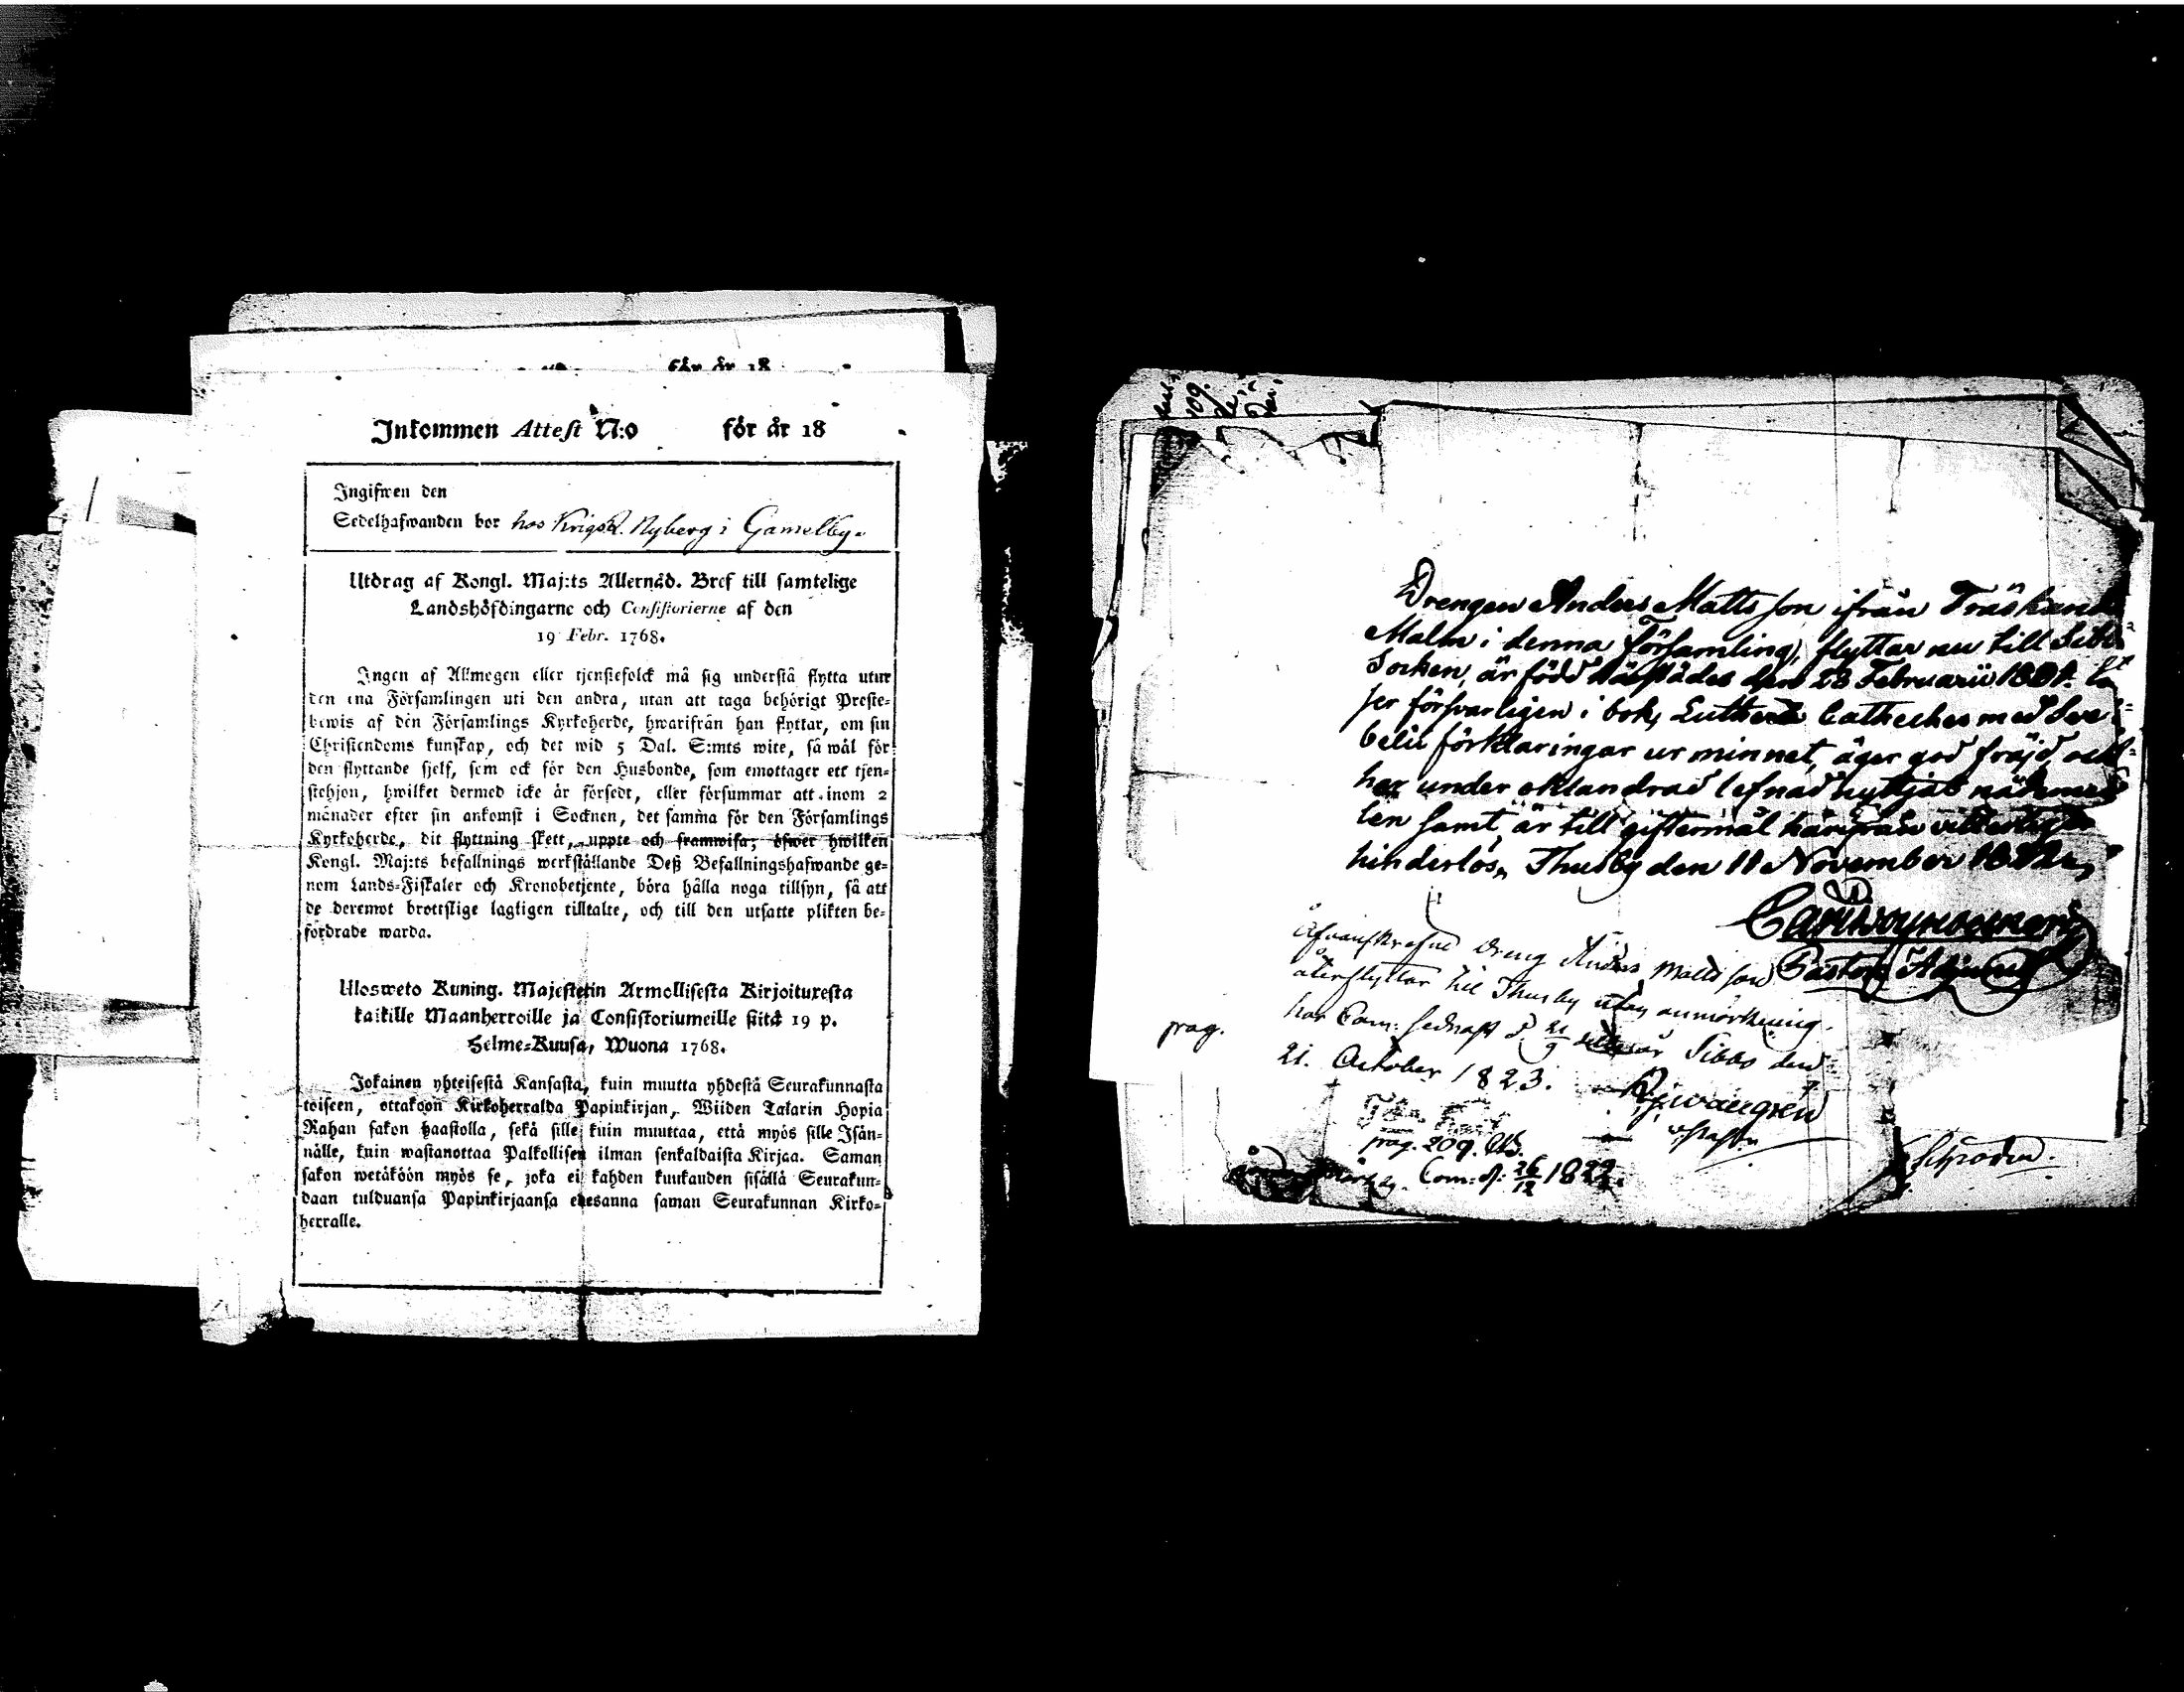 för år 18
Inkommen Attest N:o för år 18
Ingifwen den
Sedelhafwanden bor hos KrigsR. Nyberg i Gamelby.
Utdrag af Kongl. Maj:ts Allernåd. Bref till samtelige
Landshöfdingarne och Consistorierne af den
19 Febr. 1768.
Ingen af Allmogen eller tjenstefolck må sig understå flytta utur
den ena Församlingen uti den andra, utan att taga behörigt Preste-
bewis af den Församlings Kyrkoherde, hwarifrån han flyttar, om sin
Christendoms kunskap, och det wid 5 Dal. S:mts wite, så wäl för
den flyttande sjelf, som ock för den Husbonde, som emottager ett tjen-
stehjon, hwilket dermed icke är försedt, eller försummar att inom 2
månader efter sin ankomst i Socknen, det samma för den Församlings
Kyrkoherde, dit flyttning skett, uppte och framwisa; öfwer hwilken
Kongl. Maj:ts befallnings werkställande Deß Befallningshafwande ge-
nom Lands-Fiskaler och Kronobetjente, böra hålla noga tillsyn, så att
de deremot brottslige lagligen tilltalte, och till den utsatte plikten be-
fordrade warda.
Ulosweto Kuning. Majestetin Armollisesta Kirjoituxesta
kaikille Maanherroille ja Consistoriumeille siitä 19 p.
Helme-Kuusa, Wuona 1768.
Jokainen yhteisestä Kansasta, kuin muutta yhdestä Seurakunnasta
toiseen, ottakoon Kirkoherralda Papinkirjan, Wiiden Talarin Hopia
Rahan sakon haastolla, sekä sille kuin muuttaa, että myös sille Isän-
nälle, kuin wastanottaa Palkollisen ilman senkaldaista Kirjaa. Saman
sakon wetäköön myös se, joka ei kahden kuukauden sisällä Seurakun-
daan tulduansa Papinkirjaansa edesanna saman Seurakunnan Kirko-
herralle.
109.
Drengen Anders Mattsson ifrån Träskanda
Malm i denna Församling, flyttar nu till Sibbo
Socken, är född härstädes den 28 Februarii 1801. Lä
ser försvarligen i bok, Lutheri Catheches med Sve
belii förklaringar ur minnet, äger god fräjd, och
har under oklandrad lefnad nyttjat nådemed
len samt är till giftermål härifrån
hinderlös, Thusby den 11 November 1822,
Pastors Adjunct
Ofvanskrefne Dreng Anders Mattsson
återflyttar till Thusby utan anmärkning.
har Com: sednast d. 21/9 Sibbo den
prag.
21. October 1823.
pag. 209.
Com: d. 26/12 1822.
Schroder.